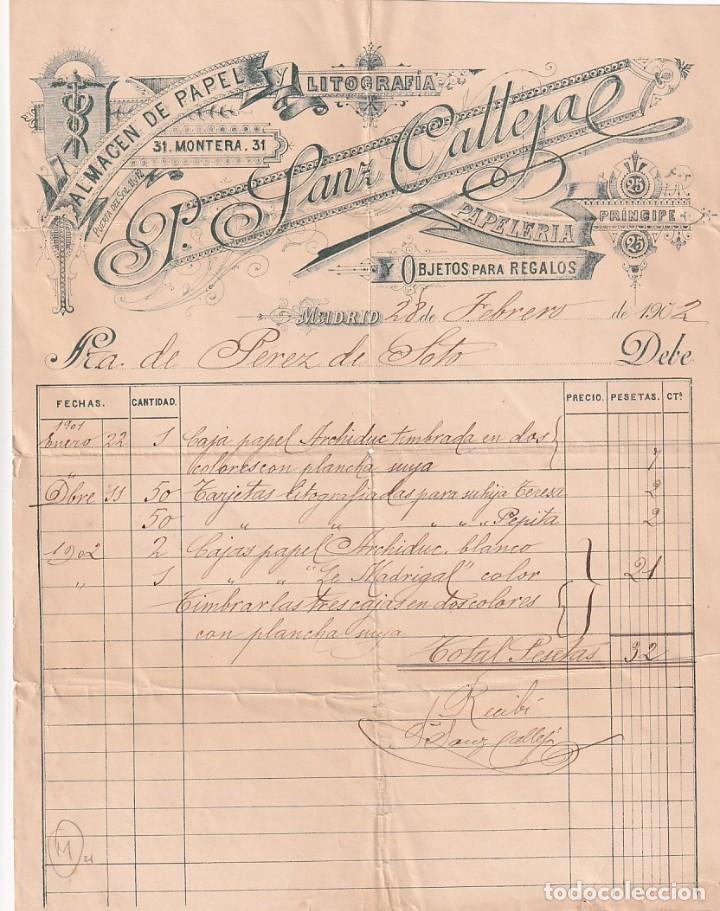 ALMACEN DE PAPEL Y LITOGRAFÍA
PUERTA DEL SOL
31. MONTERA. 31
P. Sanz Calleja
25
PRÍNCIPE
25
PAPELERIA
Y OBJETOS PARA REGALOS
MADRID 28 de Febrero de 1902
Sra. de Perez de Soto Debe
FECHAS. CANTIDAD. PRECIO. PESETAS. CTS
1901
Enero 22 1 Caja papel Archiduc timbrada en dos
colores con plancha suya 7
Dbre 11 50 Tarjetas litografiadas para su hija Teresa 2
50 " " " " " Pepita 2
1902 2 Cajas papel Archiduc. blanco
" 1 " " "Le Madrigal" color 21
Timbrar las tres cajas en dos colores
con plancha suya
Total Pesetas 32
Recibí
P. Sanz Calleja
M
todocoleccion